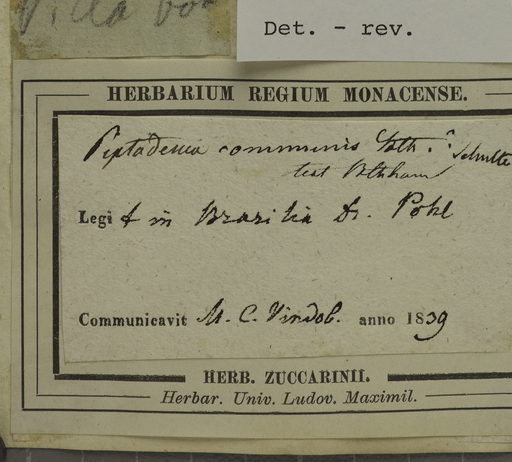 Villa
Det. - rev.
HERBARIUM REGIUM MONACENSE.
Piptadenia communis Bth.
test Bthham
Legit in Brasilia Dr. Pohl
Communicavit M. C. Vindob. anno 1839
HERB. ZUCCARINII.
Herbar. Univ. Ludov. Maximil.